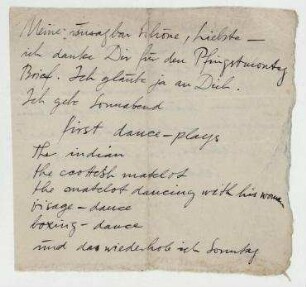 Meine unsagbar Schöne, Liebste –
ich danke Dir für den Pfingstmontag
Brief. Ich glaube ja an Dich.
Ich gebe Sonnabend
first dance-plays
the indian
the scottish matelot
the matelot dancing with his woman
visage-dance
boxing-dance
und das wiederhole ich Sonntag